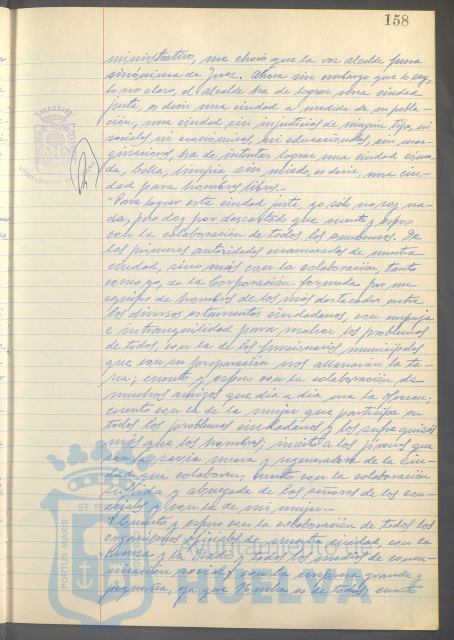 158
ministrativo, me chocó que la voz alcalde fuera
sinónima de Juez. Ahora sin embargo que lo soy,
lo veo claro, el alcalde ha de lograr una ciudad
justa, es decir una ciudad a medida de su pobla-
ción, una ciudad sin injusticias de ningún tipo, ni
sociales ni económicas, ni educacionales, ni mar-
ginaciones, ha de intentar lograr una ciudad
da, bella, limpia sin miedo, es decir, una ciu-
dad para hombres libres.-
"Para lograr esta ciudad justa, yo sólo no soy na-
da, pero doy por descontado que cuento y espero
con la colaboración de todos los De
las primeras autoridades enamoradas de nuestra
ciudad, sino más con la colaboración, tanto
como yo, de la Corporación formada por un
equipo de hombres de los más destacados entre
los diversos estamentos ciudadanos, con empuje
e intranquilidad para resolver los problemas
de todos, con la de los funcionarios municipales
que con su preparación nos allanarán la ta-
rea; cuento y espero con la colaboración de
muchos amigos que día a día me la ofrecen;
cuento con la de la mujer que participa en
todos los problemas ciudadanos y los sufre quizás
más que los hombres; invito a los jóvenes que
son la savia nueva y regeneradora de la Ciu-
dad que colaboren, cuento con la colaboración
sufrida y abnegada de las señoras de los con-
cejales y con la de mi mujer.-
"Cuento y espero con la colaboración de todos los
organismos oficiales de nuestra ciudad, con la
Prensa y la Radio y todos los medios de comu-
nicación social, con la empresa grande y
pequeña, ya que Huelva es de todos; cuento
Ayuntamiento de
HUELVA
PORTUS MARIS
ET TE